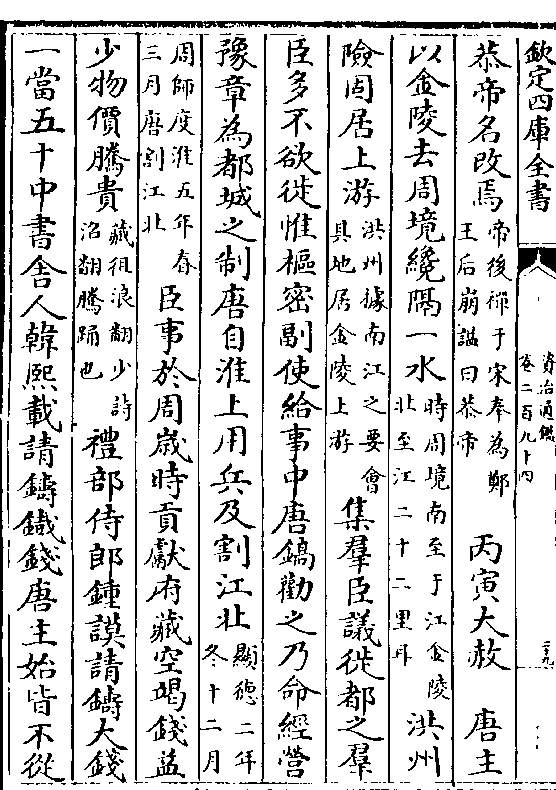 欽定四庫全書
資治通鑑
卷二百九十四
恭帝名改焉帝後禪于宋奉為鄭王后崩諡曰恭帝丙寅大赦唐主
以金陵去周境纔隔一水時周境南至于江金陵北至江二十二里耳洪州
險固居上游洪州據南江之要會其地居金陵上游集羣臣議徙都之羣
臣多不欲徙惟樞密副使給事中唐鎬勸之乃命經營
豫章為都城之制唐自淮上用兵及割江北顯德二年冬十二月
周師度淮五年春三月唐割江北臣事於周歲時貢獻府藏空竭錢益
少物價騰貴藏徂浪翻少詩沼翻騰踊也禮部侍郎鍾謨請鑄大錢
一當五十中書舍人韓熙載請鑄鐵錢唐主始皆不從